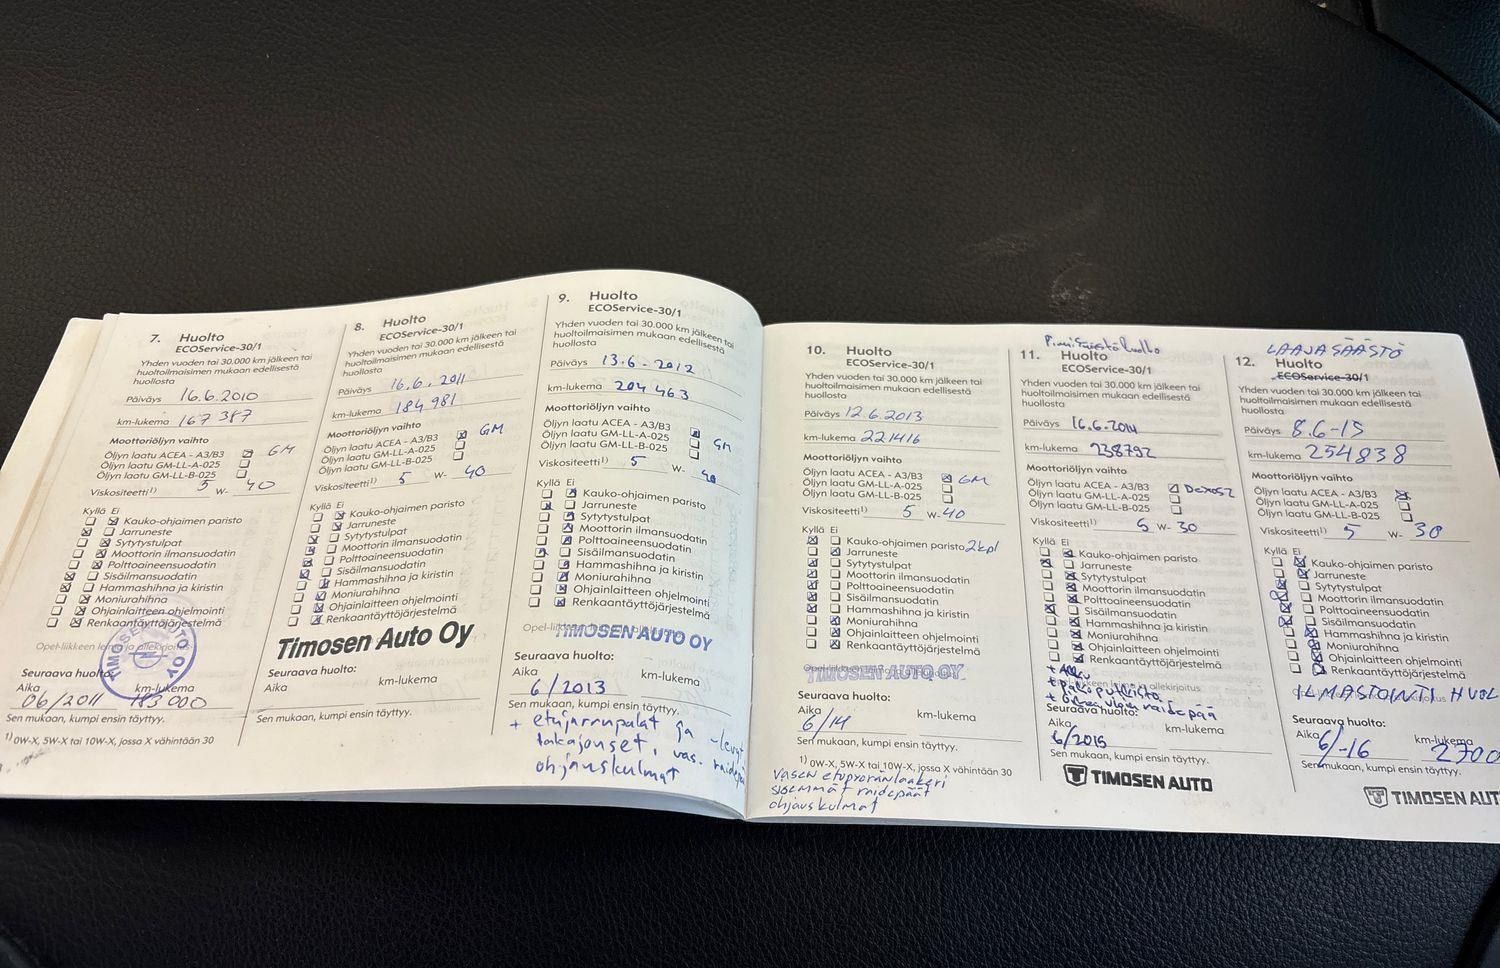 7. Huolto
ECOService-30/1
Yhden vuoden tai 30.000 km jälkeen tai
huoltoilmaisimen mukaan edellisestä
huollosta
Päiväys 16.6.2010
km-lukema 167 387
Moottoriöljyn vaihto
Öljyn laatu ACEA - A3/B3 GM
Öljyn laatu GM-LL-A-025
Öljyn laatu GM-LL-B-025
Viskositeetti1) 5 W- 40
Kyllä Ei
Kauko-ohjaimen paristo
Jarruneste
Sytytystulpat
Moottorin ilmansuodatin
Polttoaineensuodatin
Sisäilmansuodatin
Hammashihna ja kiristin
Moniurahihna
Ohjainlaitteen ohjelmointi
Renkaantäyttöjärjestelmä
TIMOSEN AUTO OY
Seuraava huolto:
Aika km-lukema
06/2011 183 000
Sen mukaan, kumpi ensin täyttyy.
1) 0W-X, 5W-X tai 10W-X, jossa X vähintään 30
8. Huolto
ECOService-30/1
Yhden vuoden tai 30.000 km jälkeen tai
huoltoilmaisimen mukaan edellisestä
huollosta
Päiväys 16.6.2011
km-lukema 184 981
Moottoriöljyn vaihto
Öljyn laatu ACEA - A3/B3 GM
Öljyn laatu GM-LL-A-025
Öljyn laatu GM-LL-B-025
Viskositeetti1) 5 W- 40
Kyllä Ei
Kauko-ohjaimen paristo
Jarruneste
Sytytystulpat
Moottorin ilmansuodatin
Polttoaineensuodatin
Sisäilmansuodatin
Hammashihna ja kiristin
Moniurahihna
Ohjainlaitteen ohjelmointi
Renkaantäyttöjärjestelmä
Timosen Auto Oy
Seuraava huolto:
Aika km-lukema
Sen mukaan, kumpi ensin täyttyy.
9. Huolto
ECOService-30/1
Yhden vuoden tai 30.000 km jälkeen tai
huoltoilmaisimen mukaan edellisestä
huollosta
Päiväys 13.6-2012
km-lukema 204 463
Moottoriöljyn vaihto
Öljyn laatu ACEA - A3/B3
Öljyn laatu GM-LL-A-025 GM
Öljyn laatu GM-LL-B-025
Viskositeetti1) 5 W- 40
Kyllä Ei
Kauko-ohjaimen paristo
Jarruneste
Sytytystulpat
Moottorin ilmansuodatin
Polttoaineensuodatin
Sisäilmansuodatin
Hammashihna ja kiristin
Moniurahihna
Ohjainlaitteen ohjelmointi
Renkaantäyttöjärjestelmä
TIMOSEN AUTO OY
Seuraava huolto:
Aika km-lukema
6/2013
Sen mukaan, kumpi ensin täyttyy.
+ etujarrupalat ja -levyt
takajouset, vas. raidepä
ohjauskulmat
10. Huolto
ECOService-30/1
Yhden vuoden tai 30.000 km jälkeen tai
huoltoilmaisimen mukaan edellisestä
huollosta
Päiväys 12.6.2013
km-lukema 221416
Moottoriöljyn vaihto
Öljyn laatu ACEA - A3/B3 GM
Öljyn laatu GM-LL-A-025
Öljyn laatu GM-LL-B-025
Viskositeetti1) 5 W- 40
Kyllä Ei
Kauko-ohjaimen paristo 2kpl
Jarruneste
Sytytystulpat
Moottorin ilmansuodatin
Polttoaineensuodatin
Sisäilmansuodatin
Hammashihna ja kiristin
Moniurahihna
Ohjainlaitteen ohjelmointi
Renkaantäyttöjärjestelmä
TIMOSEN AUTO OY
Seuraava huolto:
Aika km-lukema
6/14
Sen mukaan, kumpi ensin täyttyy.
1) 0W-X, 5W-X tai 10W-X, jossa X vähintään 30
Vasen etupyöränlaakeri
sisemmät raidepäät
ohjauskulmat
11. Huolto
ECOService-30/1
Yhden vuoden tai 30.000 km jälkeen tai
huoltoilmaisimen mukaan edellisestä
huollosta
Päiväys 16.6.2014
km-lukema 238792
Moottoriöljyn vaihto
Öljyn laatu ACEA - A3/B3 Dexos2
Öljyn laatu GM-LL-A-025
Öljyn laatu GM-LL-B-025
Viskositeetti1) 5 W- 30
Kyllä Ei
Kauko-ohjaimen paristo
Jarruneste
Sytytystulpat
Moottorin ilmansuodatin
Polttoaineensuodatin
Sisäilmansuodatin
Hammashihna ja kiristin
Moniurahihna
Ohjainlaitteen ohjelmointi
Renkaantäyttöjärjestelmä
+ Akku
raidepää
Seuraava huolto:
Aika km-lukema
6/2015
Sen mukaan, kumpi ensin täyttyy.
TIMOSEN AUTO
LAAJA SÄÄSTÖ
12. Huolto
ECOService-30/1
Yhden vuoden tai 30.000 km jälkeen tai
huoltoilmaisimen mukaan edellisestä
huollosta
Päiväys 8.6-15
km-lukema 254838
Moottoriöljyn vaihto
Öljyn laatu ACEA - A3/B3
Öljyn laatu GM-LL-A-025
Öljyn laatu GM-LL-B-025
Viskositeetti1) 5 W- 30
Kyllä Ei
Kauko-ohjaimen paristo
Jarruneste
Sytytystulpat
Moottorin ilmansuodatin
Polttoaineensuodatin
Sisäilmansuodatin
Hammashihna ja kiristin
Moniurahihna
Ohjainlaitteen ohjelmointi
Renkaantäyttöjärjestelmä
ILMASTOINTI HUOL
Seuraava huolto:
Aika km-lukema
6/-16 2700
Sen mukaan, kumpi ensin täyttyy.
TIMOSEN AUT